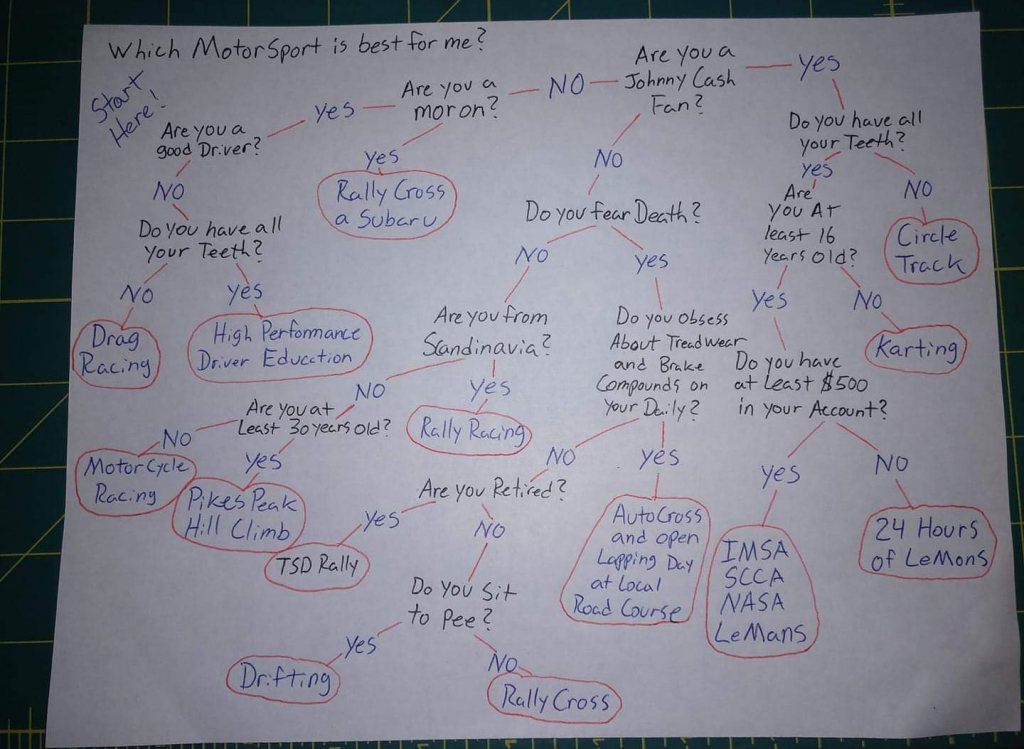 Which MotorSport is best for me?
Start
Here!
Are you a
good Driver?
Yes
Are you a
moron?
NO
Are you a
Johnny Cash
Fan?
Yes
NO
Do you have all
your Teeth?
NO
Drag
Racing
Yes
High Performance
Driver Education
Yes
Rally Cross
a Subaru
NO
Do you fear Death?
NO
Are you from
Scandinavia?
NO
Are you at
Least 30 years old?
NO
MotorCycle
Racing
Yes
Pikes Peak
Hill Climb
Yes
Rally Racing
Yes
Do you obsess
About Treadwear
and Brake
Compounds on
Your Daily?
NO
Are you Retired?
Yes
TSD Rally
NO
Do you Sit
to Pee?
Yes
Drifting
NO
Rally Cross
Yes
AutoCross
and open
Lapping Day
at Local
Road Course
Do you have all
your Teeth?
Yes
Are
you At
least 16
Years old?
Yes
Do you have
at Least $500
in your Account?
Yes
IMSA
SCCA
NASA
LeMans
NO
24 Hours
of LeMons
NO
Karting
NO
Circle
Track